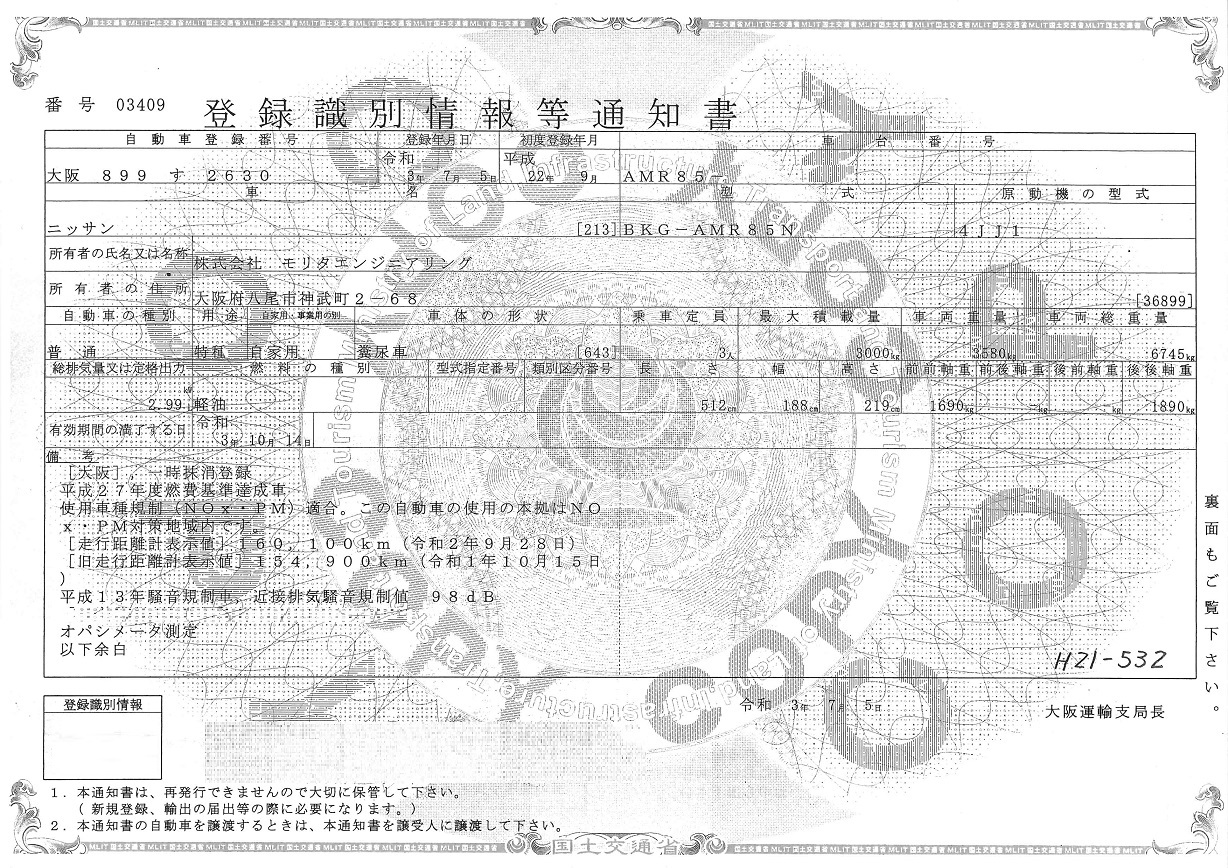 国土交通省 MLIT 国土交通省 MLIT 国土交通省 MLIT 国土交通省
番号 03409
登録識別情報等通知書
自動車登録番号 登録年月日 初度登録年月 車台番号
令和 平成
大阪 899 す 2630 3年 7月 5日 22年 9月 AMR85-
車名 型式 原動機の型式
ニッサン [213] BKG-AMR85N 4JJ1
所有者の氏名又は名称 株式会社 モリタエンジニアリング
所有者の住所 大阪府八尾市神武町2-68 [36899]
自動車の種別 用途 自家用・事業用の別 車体の形状 乗車定員 最大積載量 車両重量 車両総重量
普通 特種 自家用 糞尿車 [643] 3人 3000kg 3580kg 6745kg
総排気量又は定格出力 燃料の種別 型式指定番号 類別区分番号 長さ 幅 高さ 前前軸重 前後軸重 後前軸重 後後軸重
kW
2.99L 軽油 512cm 188cm 219cm 1690kg -kg -kg 1890kg
令和
有効期間の満了する日 3年 10月 14日
備考
[大阪],一時抹消登録
平成27年度燃費基準達成車
使用車種規制(NOx・PM)適合。この自動車の使用の本拠はNO
x・PM対策地域内です。
[走行距離計表示値]160,100km(令和2年9月28日)
[旧走行距離計表示値]154,900km(令和1年10月15日
)
平成13年騒音規制車,近接排気騒音規制値 98dB
オパシメータ測定
以下余白
H21-532
裏面もご覧下さい。
登録識別情報
令和 3年 7月 5日
大阪運輸支局長
1.本通知書は、再発行できませんので大切に保管して下さい。
(新規登録、輸出の届出等の際に必要になります。)
2.本通知書の自動車を譲渡するときは、本通知書を譲受人に譲渡して下さい。
MLIT 国土交通省 MLIT 国土交通省 国土交通省 国土交通省 MLIT 国土交通省
COPY
Ministry of Land, Infrastructure, Transport and Tourism